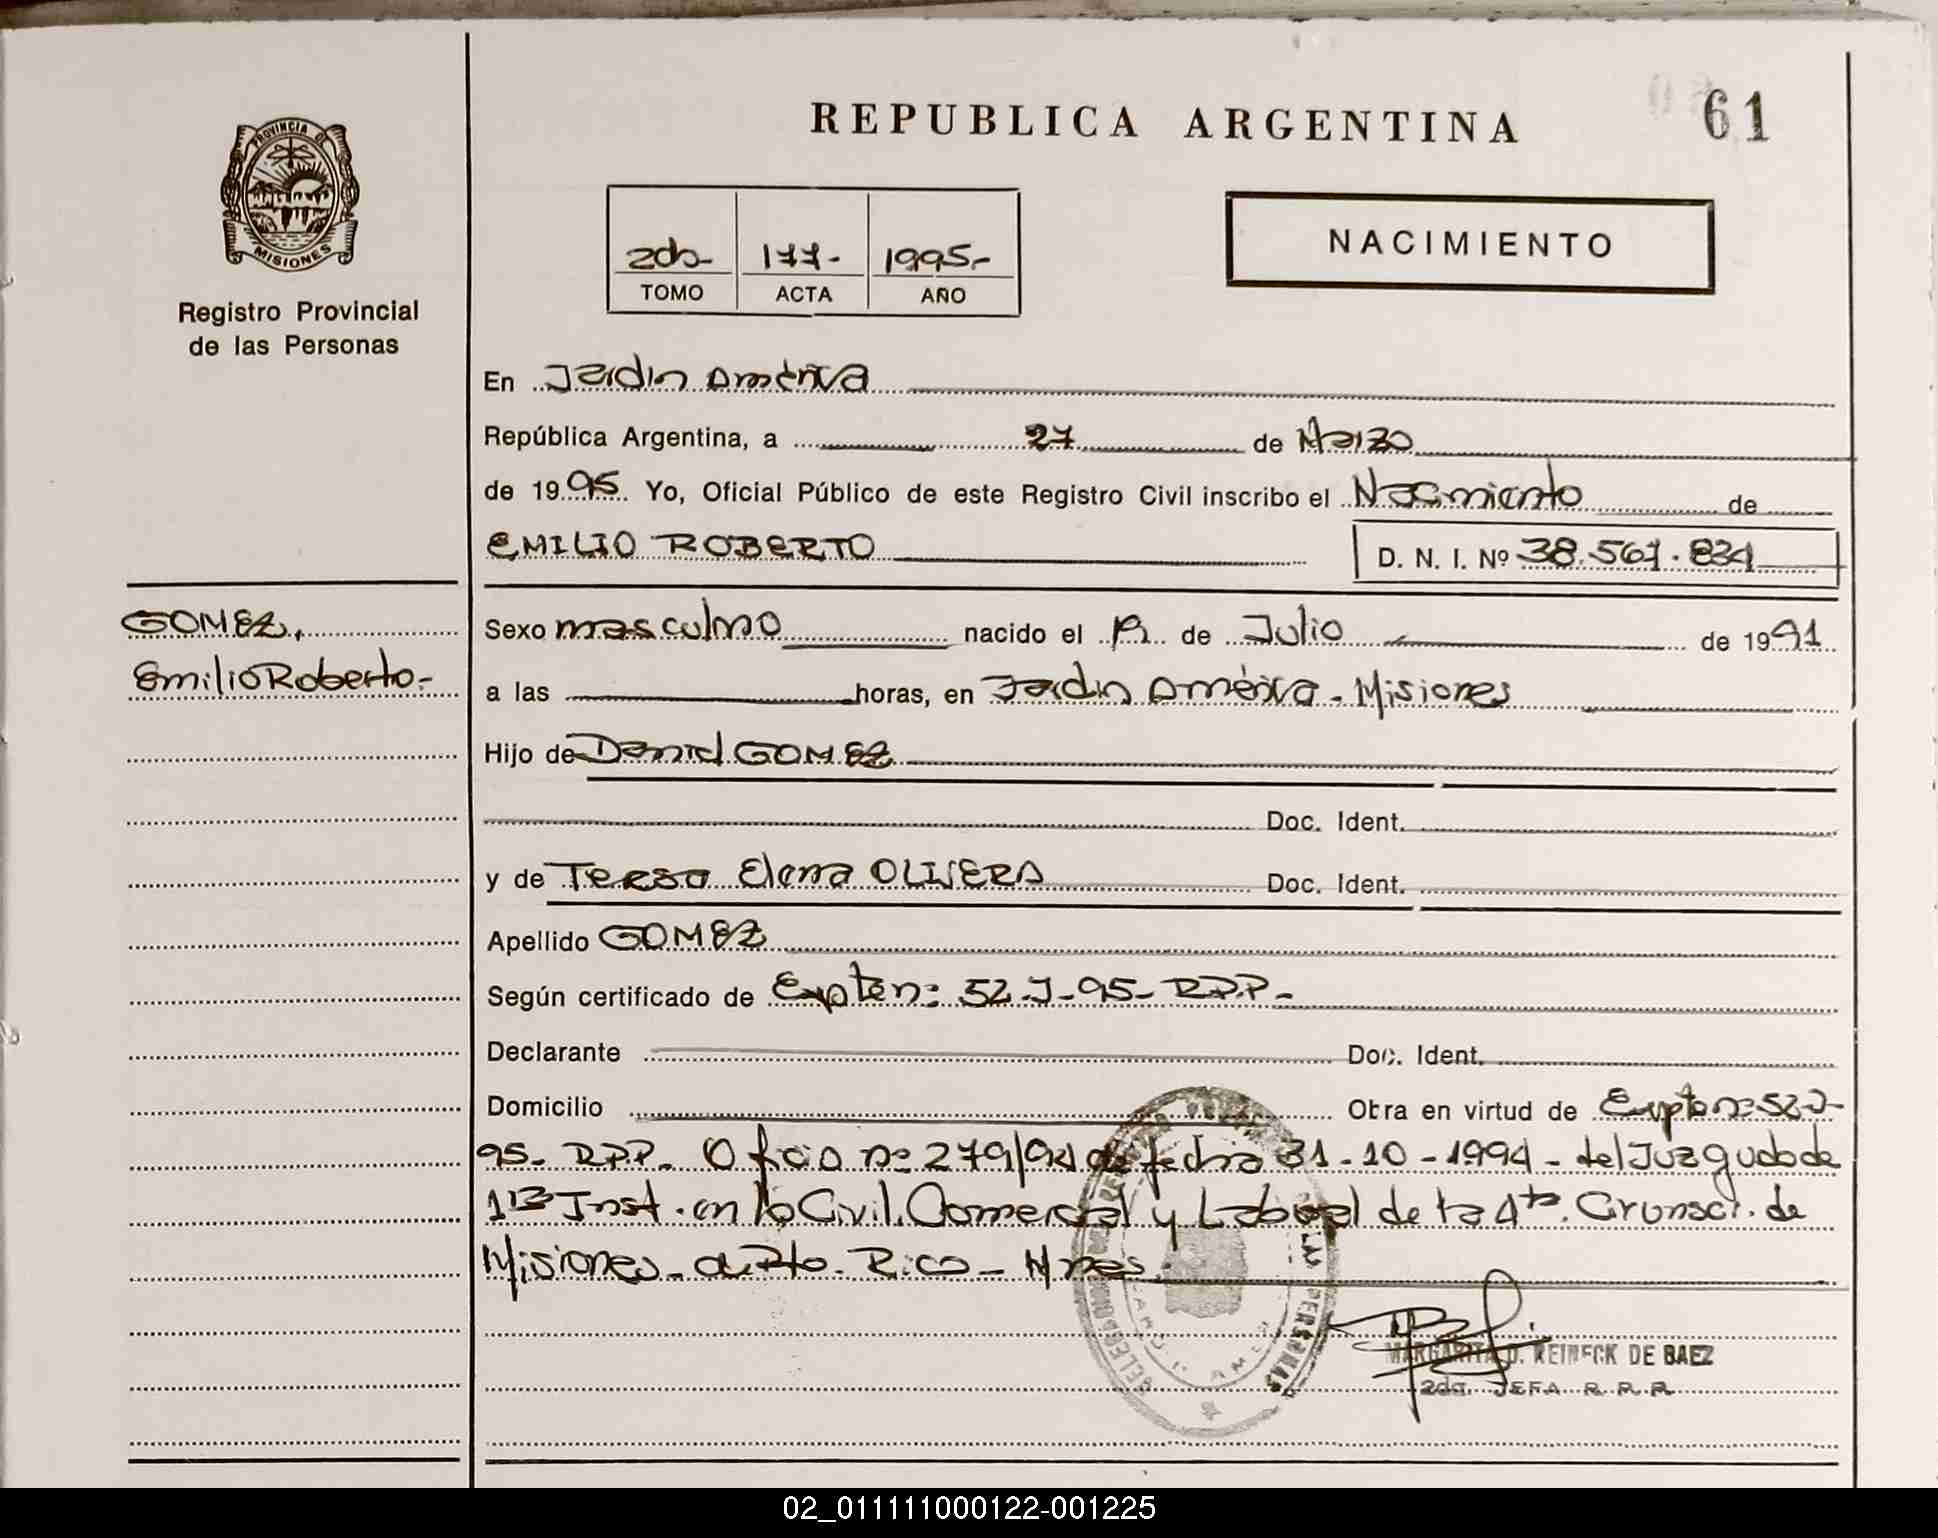 REPUBLICA ARGENTINA
61
PROVINCIA DE
MISIONES
Registro Provincial
de las Personas
2do- 177.- 1995.-
TOMO ACTA AÑO
NACIMIENTO
En Jardin América
República Argentina, a 27 de Marzo
de 1995. Yo, Oficial Público de este Registro Civil inscribo el Nacimiento de
EMILIO ROBERTO D. N. I. Nº 38.561.834
GOMEZ,
Emilio Roberto.-
Sexo masculino nacido el de Julio de 1991
a las horas, en Jardin América - Misiones
Hijo de Daniel GOMEZ
Doc. Ident.
y de Teresa Elena OLIVERA Doc. Ident.
Apellido GOMEZ
Según certificado de Expte nº 52-J-95- RPP.-
Declarante Doc. Ident.
Domicilio Obra en virtud de Expte nº 52-J-
95- RPP. Oficio nº 279/94 de fecha 31-10-1994 - del Juzgado de
1ra Inst. en lo Civil, Comercial y Laboral de la 4ta. Circunsc. de
Misiones - Pto. Rico - Mnes.
MARGARITA D. REINECK DE BAEZ
2da. JEFA R.P.P.
02_011111000122-001225